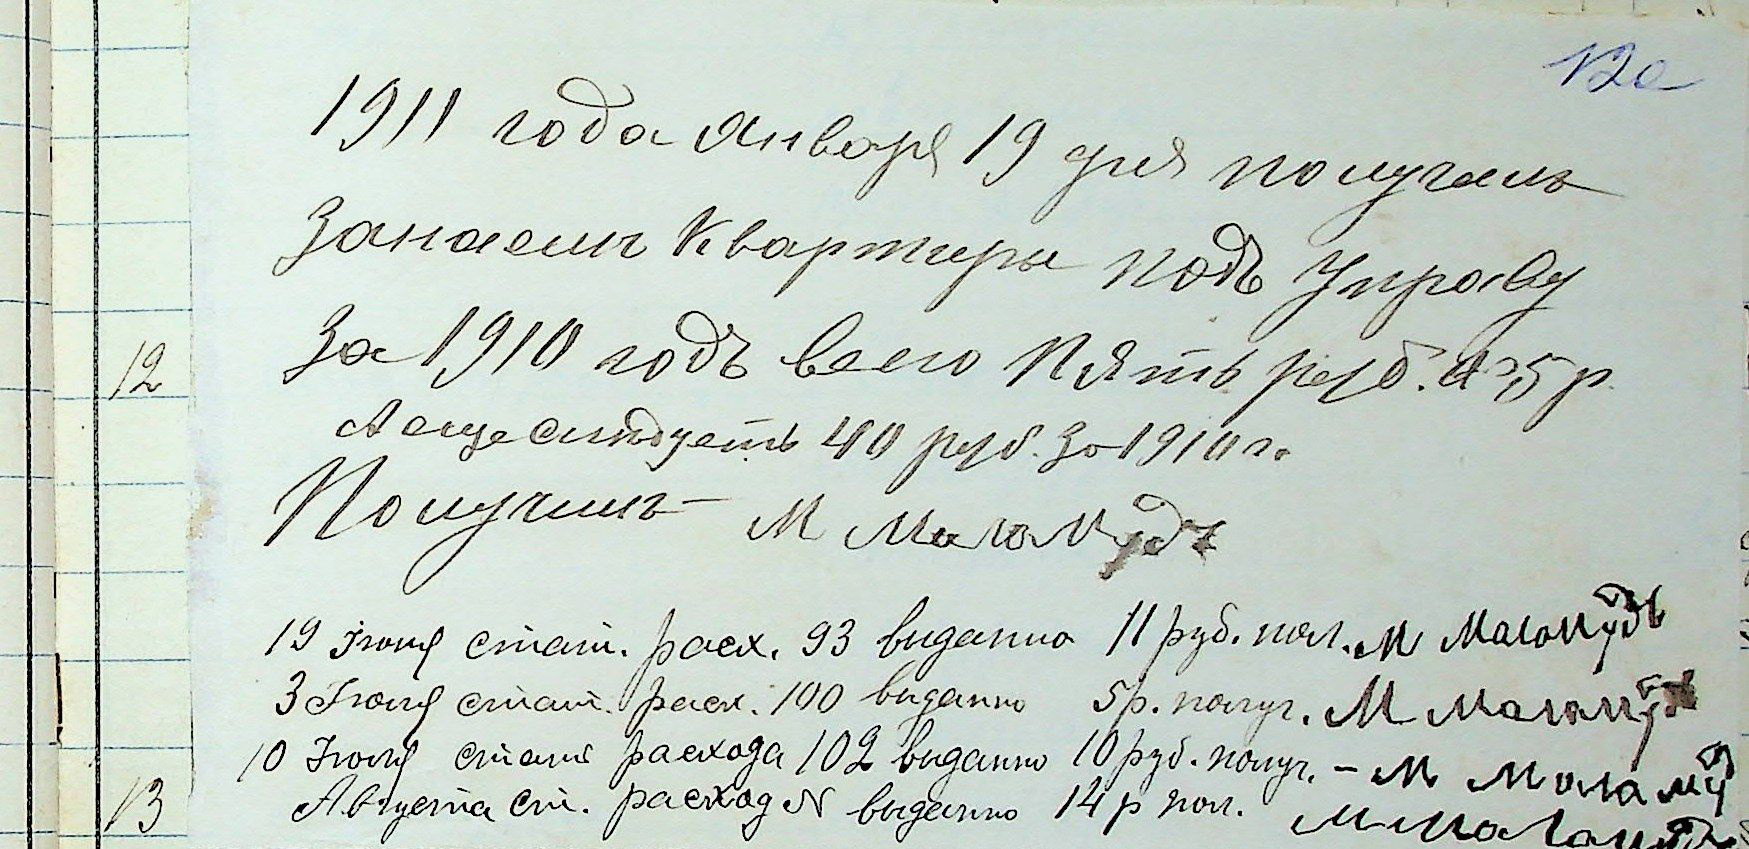 12а
1911 года Января 19 дня получилъ
Занаемъ Квартиры подъ Управу
За 1910 годъ всего Пять руб. 5 р.
А еще слѣдуетъ 40 руб. За 1910 г.
Получилъ М Маломудъ
19 Іюня стат. расх. 93 выданно 11 руб. пол. М Маломудъ
12
3 Іюля стат. расх. 100 выданно 5 р. получ. М Маломуд
10 Іюля стат расхода 102 выданно 10 руб. получ. - М Маламуд
Августа ст. расход N выданно 14 р пол. М Маламуд
13